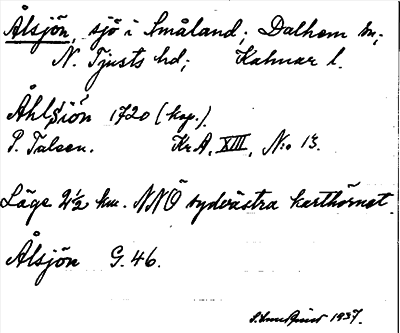 Ålsjön, sjö i Småland; Dalhem sn;
N. Tjusts hd; Kalmar l.
Åhlsiön 1720 (kop.).
P. Talsen. Kr A, XIII, N:o 13.
Läge 2½ km. NNÖ sydvästra karthörnet.
Ålsjön G. 46.
1937.